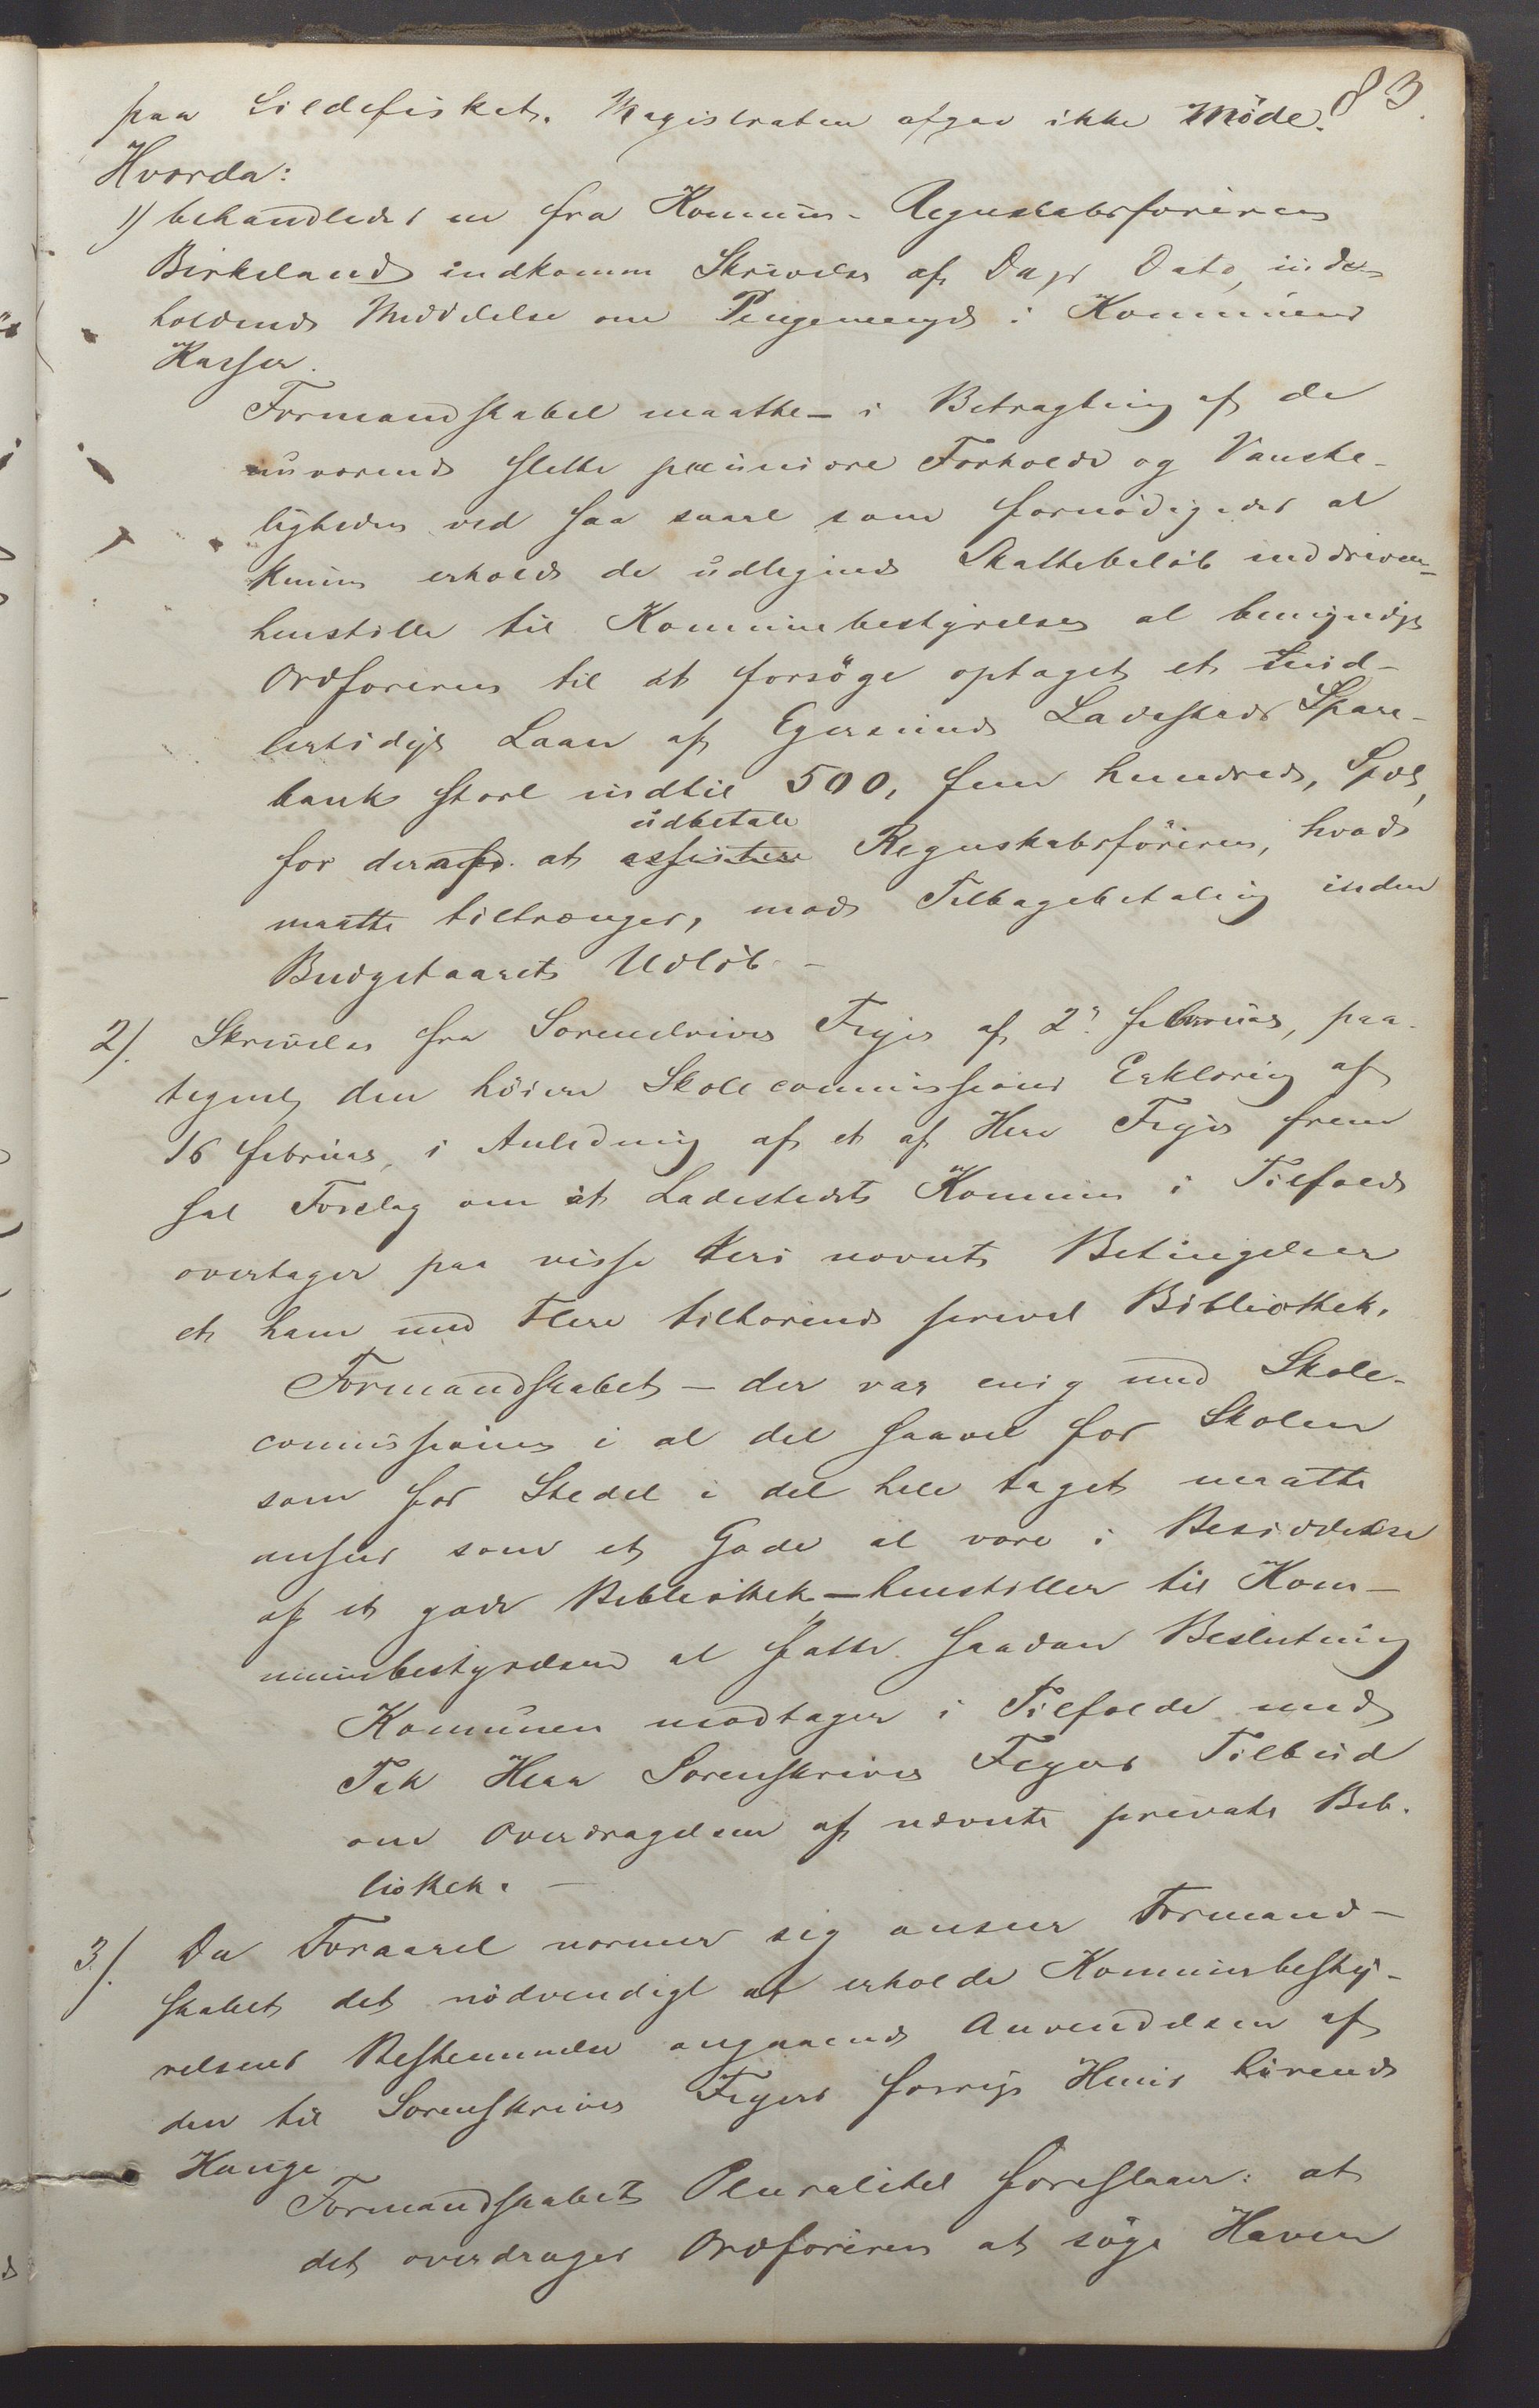 83.
paa Sildefisket. Magistraten afgav ikke Möde.
Hvorda:
1) behandledes en fra Kommune-Regnskabsföreren
Birkeland indkommen Skrivelse af Dags Dato, inde-
holdende Meddelelse om Pengemangel i Kommunens
Kasser.
Formandskabet maatte - i Betragtning af de
nuværende slette pecuniære Forholde og Vanske-
ligheden ved saa snart som fornödiges at
kunne erholde de udlignede Skattebelöb inddrevne -
henstille til Kommunebestyrelsen at bemyndige
Ordföreren til at forsöge optaget et mid-
lertidigt Laan af Egersunds Ladesteds Spare-
bank stort indtil 500, fem hundrede, Spdl,
for deraf at udbetale assistere Regnskabsföreren, hvad
maatte tiltrænges, mod Tilbagebetaling inden
Budgetaarets Udlöb. -
2). Skrivelse fra Sorenskriver Feyer af 2. februar, paa-
tegnet den höiere Skolecommissions Erklæring af
16 februar, i Anledning af et af Herr Feyer frem
sat Forslag om at Ladestedets Kommune i Tilfælde
overtager paa visse deri nævnte Betingelser
et ham med Flere tilhörende privat Bibliothek.
Formandskabet - der var enig med Skole-
commissionen i at det saavel for Skolen
som for Stedet i det hele taget maatte
ansees som et Gode at være i Besiddelse
af et godt Bibliothek - henstiller til Kom-
munebestyrelsen at fatte saadan Beslutning
Kommunen modtager i Tilfælde med
Tak Herr Sorenskriver Feyers Tilbud
om Overdragelsen af nævnte private Bib-
liothek. -
3). Da Foraaret nærmer sig anseer Formand-
skabet det nödvendigt at erholde Kommunebesty-
relsens Bestemmelse angaaende Anvendelsen af
den til Sorenskriver Feyers forrige Huus hörende
Hauge
Formandskabets Pluralitet foreslaaer: at
det overdrages Ordföreren at söge Haven